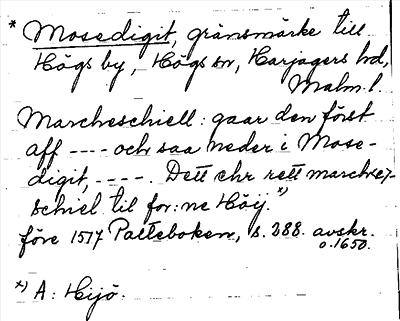 * Mosedigit, gränsmärke till
Högs by, Högs sn, Harjagers hd,
Malm. l.
Marckeschiell: gaar den först
aff ---- och saa neder i Mose-
digit, ----. Dett ehr rett marckej-
schiel til for:ne Höij. *)
före 1577 Palteboken, s. 388. avskr.
o. 1650.
*) A: Hijö.